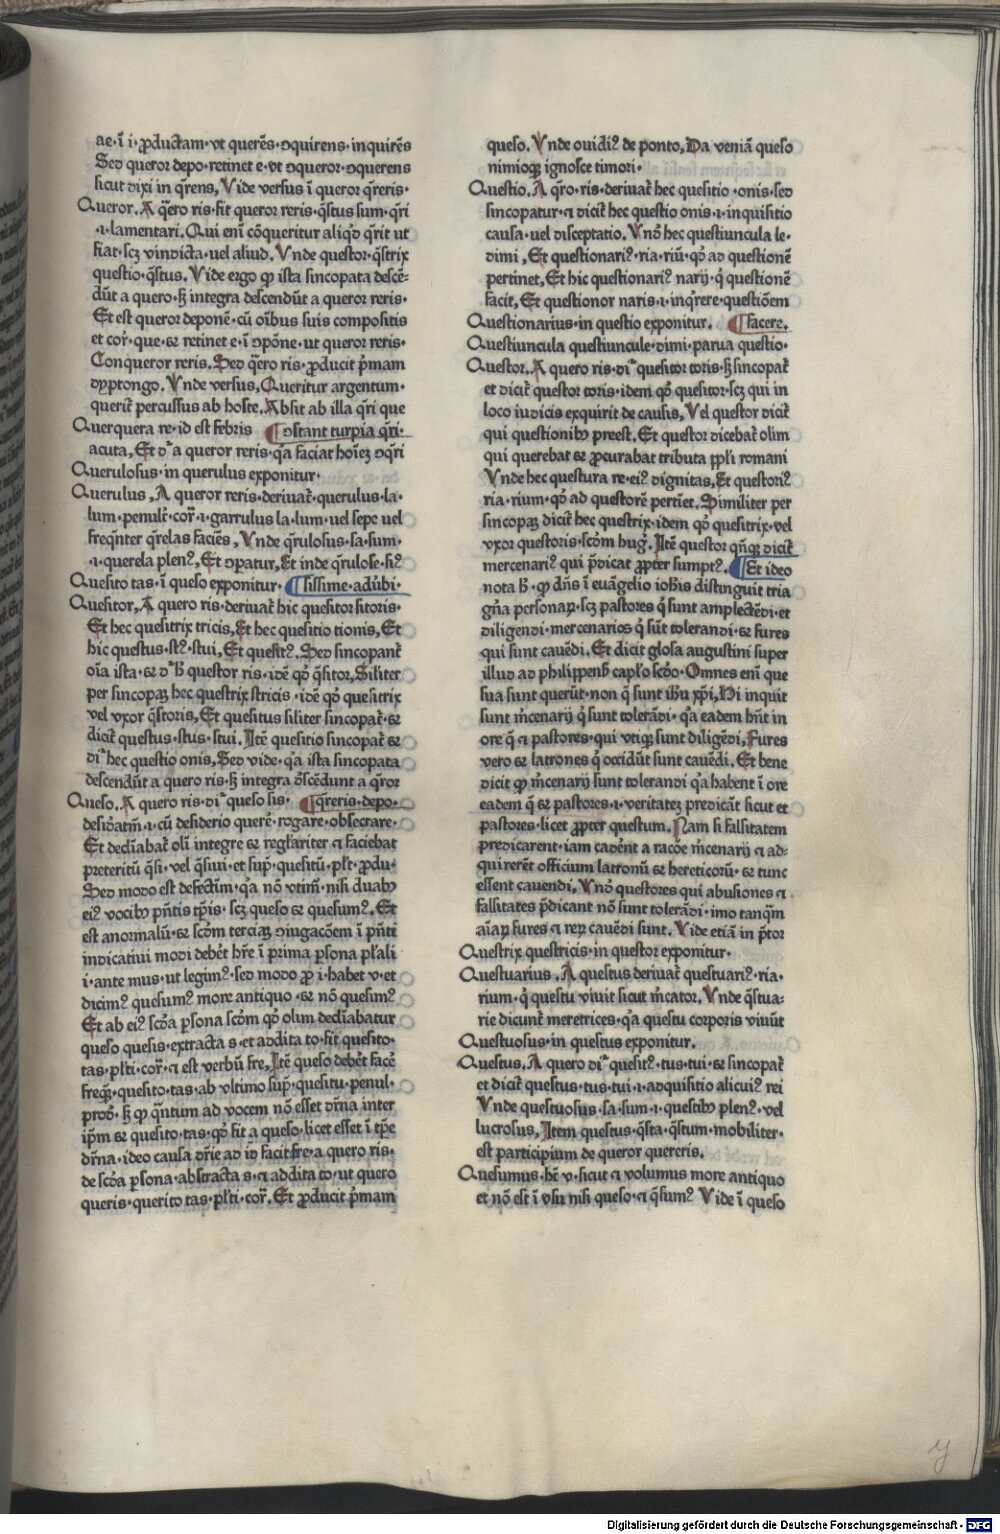 ae·ī i·ꝓductam·vt querēs·ꝯquirens·inquirēs
Sed queror depo·retinet e·vt ꝯqueror·ꝯquerens
sicut dixi in q̄rens, Vide versus ī queror q̄reris·
Queror. A q̄ero ris·fit queror reris·q̄stus sum·q̄ri
·i·lamentari. Qui eni cōqueritur aliqͦd q̄rit ut
fiat·scꝫ vindicta·uel aliud. Vnde questor·q̄strix
questio·q̄stus. Vide ergo ꝙ ista sincopata descē-
dūt a quero·ꝫ integra descendūt a queror reris·
Et est queror deponē·cū oībus suis compositis
et cor̄·que·⁊ retinet e·ī ꝯpōne·ut queror reris·
Conqueror reris. Sed q̄ero ris·ꝓducit p̄mam
dyptongo. Vnde versus, Queritur argentum·
querit̄ percussus ab hoste. Absit ab illa q̄ri que
Querquera re·id est febris ¶ ꝯstant turpia q̄ri·
acuta, Et dʳ a queror reris·qᷓa faciat hoīeꝫ ꝯq̄ri
Querulosus·in querulus exponitur·
Querulus, A queror reris·deriuat̄·querulus·la·
lum·penult̄·cor̄·i·garrulus la·lum·uel sepe uel
freq̄nter q̄relas faciēs, Vnde q̄rulosus·sa·sum·
·i·querela plenꝰ, Et ꝯpatur, Et inde q̄rulose·siꝰ
Quesito tas·ī queso exponitur· ¶ sissime·adūbi·
Quesitor, A quero ris·deriuat̄ hic quesitor sitoris·
Et hec quesitrix tricis, Et hec quesitio tionis, Et
hic questus·stꝰ·stui, Et quesitꝰ. Sed sincopant̄
oīa ista·⁊ dʳ ħ questor ris·idē qͦd q̄sitor, Siliter
per sincopaꝫ hec questrix stricis·idē qͦd quesitrix
vel vxor q̄storis, Et quesitus siliter sincopat̄·⁊
dicit̄ questus·stus·stui. Itē quesitio sincopat̄ ⁊
diʳ hec questio onis, Sed vide·qᷓa ista sincopata
descendūt a quero ris·ꝫ integra ꝺ̄scēdunt a q̄ror
Queso. A quero ris·diʳ queso sis· ¶ q̄reris·depo·
desiđatīn·i·cū desiderio querē·rogare·obsecrare·
Et decliābat̄ oli integre ⁊ regl'ariter ⁊ faciebat
preteritū q̄si·vel q̄siui·et sup̄·quesitū·pl't·ꝓdu·
Sed modo est defectiuꝫ·qᷓa nō vtim̄·nisi duabꝫ
eiꝰ vocibꝫ pn̄tis tp̄is·scꝫ queso ⁊ quesumꝰ. Et
est anormalū·⁊ scđm terciaꝫ ꝯiugacōem ī pn̄ti
indicatiui modi debet hr̄e ī prima ꝑsona pl'ali
i·ante mus·ut legimꝰ·sed modo ꝓ i·habet v·et
dicimꝰ quesumꝰ more antiquo·⁊ nō quesimꝰ
Et ab eiꝰ scđa ꝑsona scđm qͦd olim decliabatur
queso quesis·extracta s·et addita to·fit quesito·
tas·pl'ti·cor̄·⁊ est verbū fre, Itē queso debet facē
freq̄·quesito·tas·ab vltimo sup̄·quesitu·penul·
prođ·ꝫ ꝙ q̄ntum ad vocem nō esset dr̄na inter
ip̄m ⁊ quesito·tas·qͦd fit a queso·licet esset ī tp̄e
dr̄na·ideo causa dr̄ie ad id facit fre·a quero ris·
de scđa ꝑsona·abstracta s·⁊ addita to·ut quero
queris·querito tas·pl'ti·cor̄. Et ꝓducit p̄mam
queso. Vnde ouidiꝰ de ponto, Da veniā queso
nimioqꝫ ignosce timori·
Questio. A q̄ro·ris·deriuat̄ hec quesitio·onis·sed
sincopatur·⁊ dicit̄ hec questio onis·i·inquisitio
causa·uel disceptatio. Vnđ hec questiuncula le·
dimi, Et questionariꝰ·ria·riū·qͦd ad questionē
pertinet, Et hic questionariꝰ narij·q̄ questionē
facit, Et questionor naris·i·inq̄rere·questiōem
Questionarius·in questio exponitur. ¶ facere.
Questiuncula questiuncule·dimi·parua questio·
Questor. A quero ris·diʳ quesitor toris·ꝫ sincopat̄
et dicit̄ questor toris·idem qͦd quesitor·scꝫ qui in
loco iudicis exquirit de causis, Vel questor dicit̄
qui questionibꝫ preest. Et questor dicebat̄ olim
qui querebat ⁊ ꝓcurabat tributa ppl'i romani
Vnde hec questura re·eiꝰ dignitas, Et questoriꝰ
ria·rium·qͦd ad questorē pertiet̄. Similiter per
sincopaꝫ dicit̄ hec questrix·idem qͦd quesitrix·vel
vxor questoris·scđm hug. Itē questor qn̄qꝫ dicit̄
mercenariꝰ qui p̄dicat ꝓpter sumptꝰ. ¶ Et ideo
nota ħ·ꝙ dn̄s ī euāgelio iohis distinguit tria
gn̄a personaꝝ·scꝫ pastores q̄ sunt amplectēdi·et
diligendi·mercenarios q̄ sūt tolerandi·⁊ fures
qui sunt cauēdi. Et dicit glosa augustini super
illud ad philippenꝫ capl'o scđo·Omnes eni que
sua sunt querūt·non q̄ sunt ihu xp̄i, Hi inquit
sunt m̄cenarij q̄ sunt tolerādi·qᷓa eadem hn̄t in
ore q̄ ⁊ pastores·qui vtiqꝫ sunt diligēdi, Fures
vero ⁊ latrones q̄ occidūt sunt cauēdi. Et bene
dicit ꝙ m̄cenarij sunt tolerandi qᷓa habent ī ore
eadem q̄ ⁊ pastores·i·veritateꝫ predicāt sicut et
pastores·licet ꝓpter questum. Nam si falsitatem
predicarent·iam cadēnt a racōe m̄cenarij ⁊ ad-
quirerēt officium latronū ⁊ hereticorū·⁊ tunc
essent cauendi. Vnđ questores qui abusiones ⁊
falsitates p̄dicant nō sunt tolerādi·imo tanq̄m
aīaꝝ fures ⁊ reꝝ cauēdi sunt. Vide etiā in p̄tor
Questrix questricis·in questor exponitur.
Questuarius. A questus deriuat̄ questuariꝰ·ria·
rium·q̄ questu viuit sicut m̄cator. Vnde q̄stua-
rie dicunt̄ meretrices·qᷓa questu corporis viuūt
Questuosus·in questus exponitur.
Questus. A quero diʳ quesitꝰ·tus·tui·⁊ sincopat̄
et dicit̄ questus·tus·tui·i·adquisitio alicuiꝰ rei
Vnde questuosus·sa·sum·i·questibꝫ plenꝰ·vel
lucrosus, Item questus·q̄sta·q̄stum·mobiliter·
est participium de queror quereris.
Quesumus·hꝫ v·sicut ⁊ volumus more antiquo
et nō est ī vsu nisi queso·⁊ q̄sumꝰ Vide ī queso
y
Digitalisierung gefördert durch die Deutsche Forschungsgemeinschaft - DFG